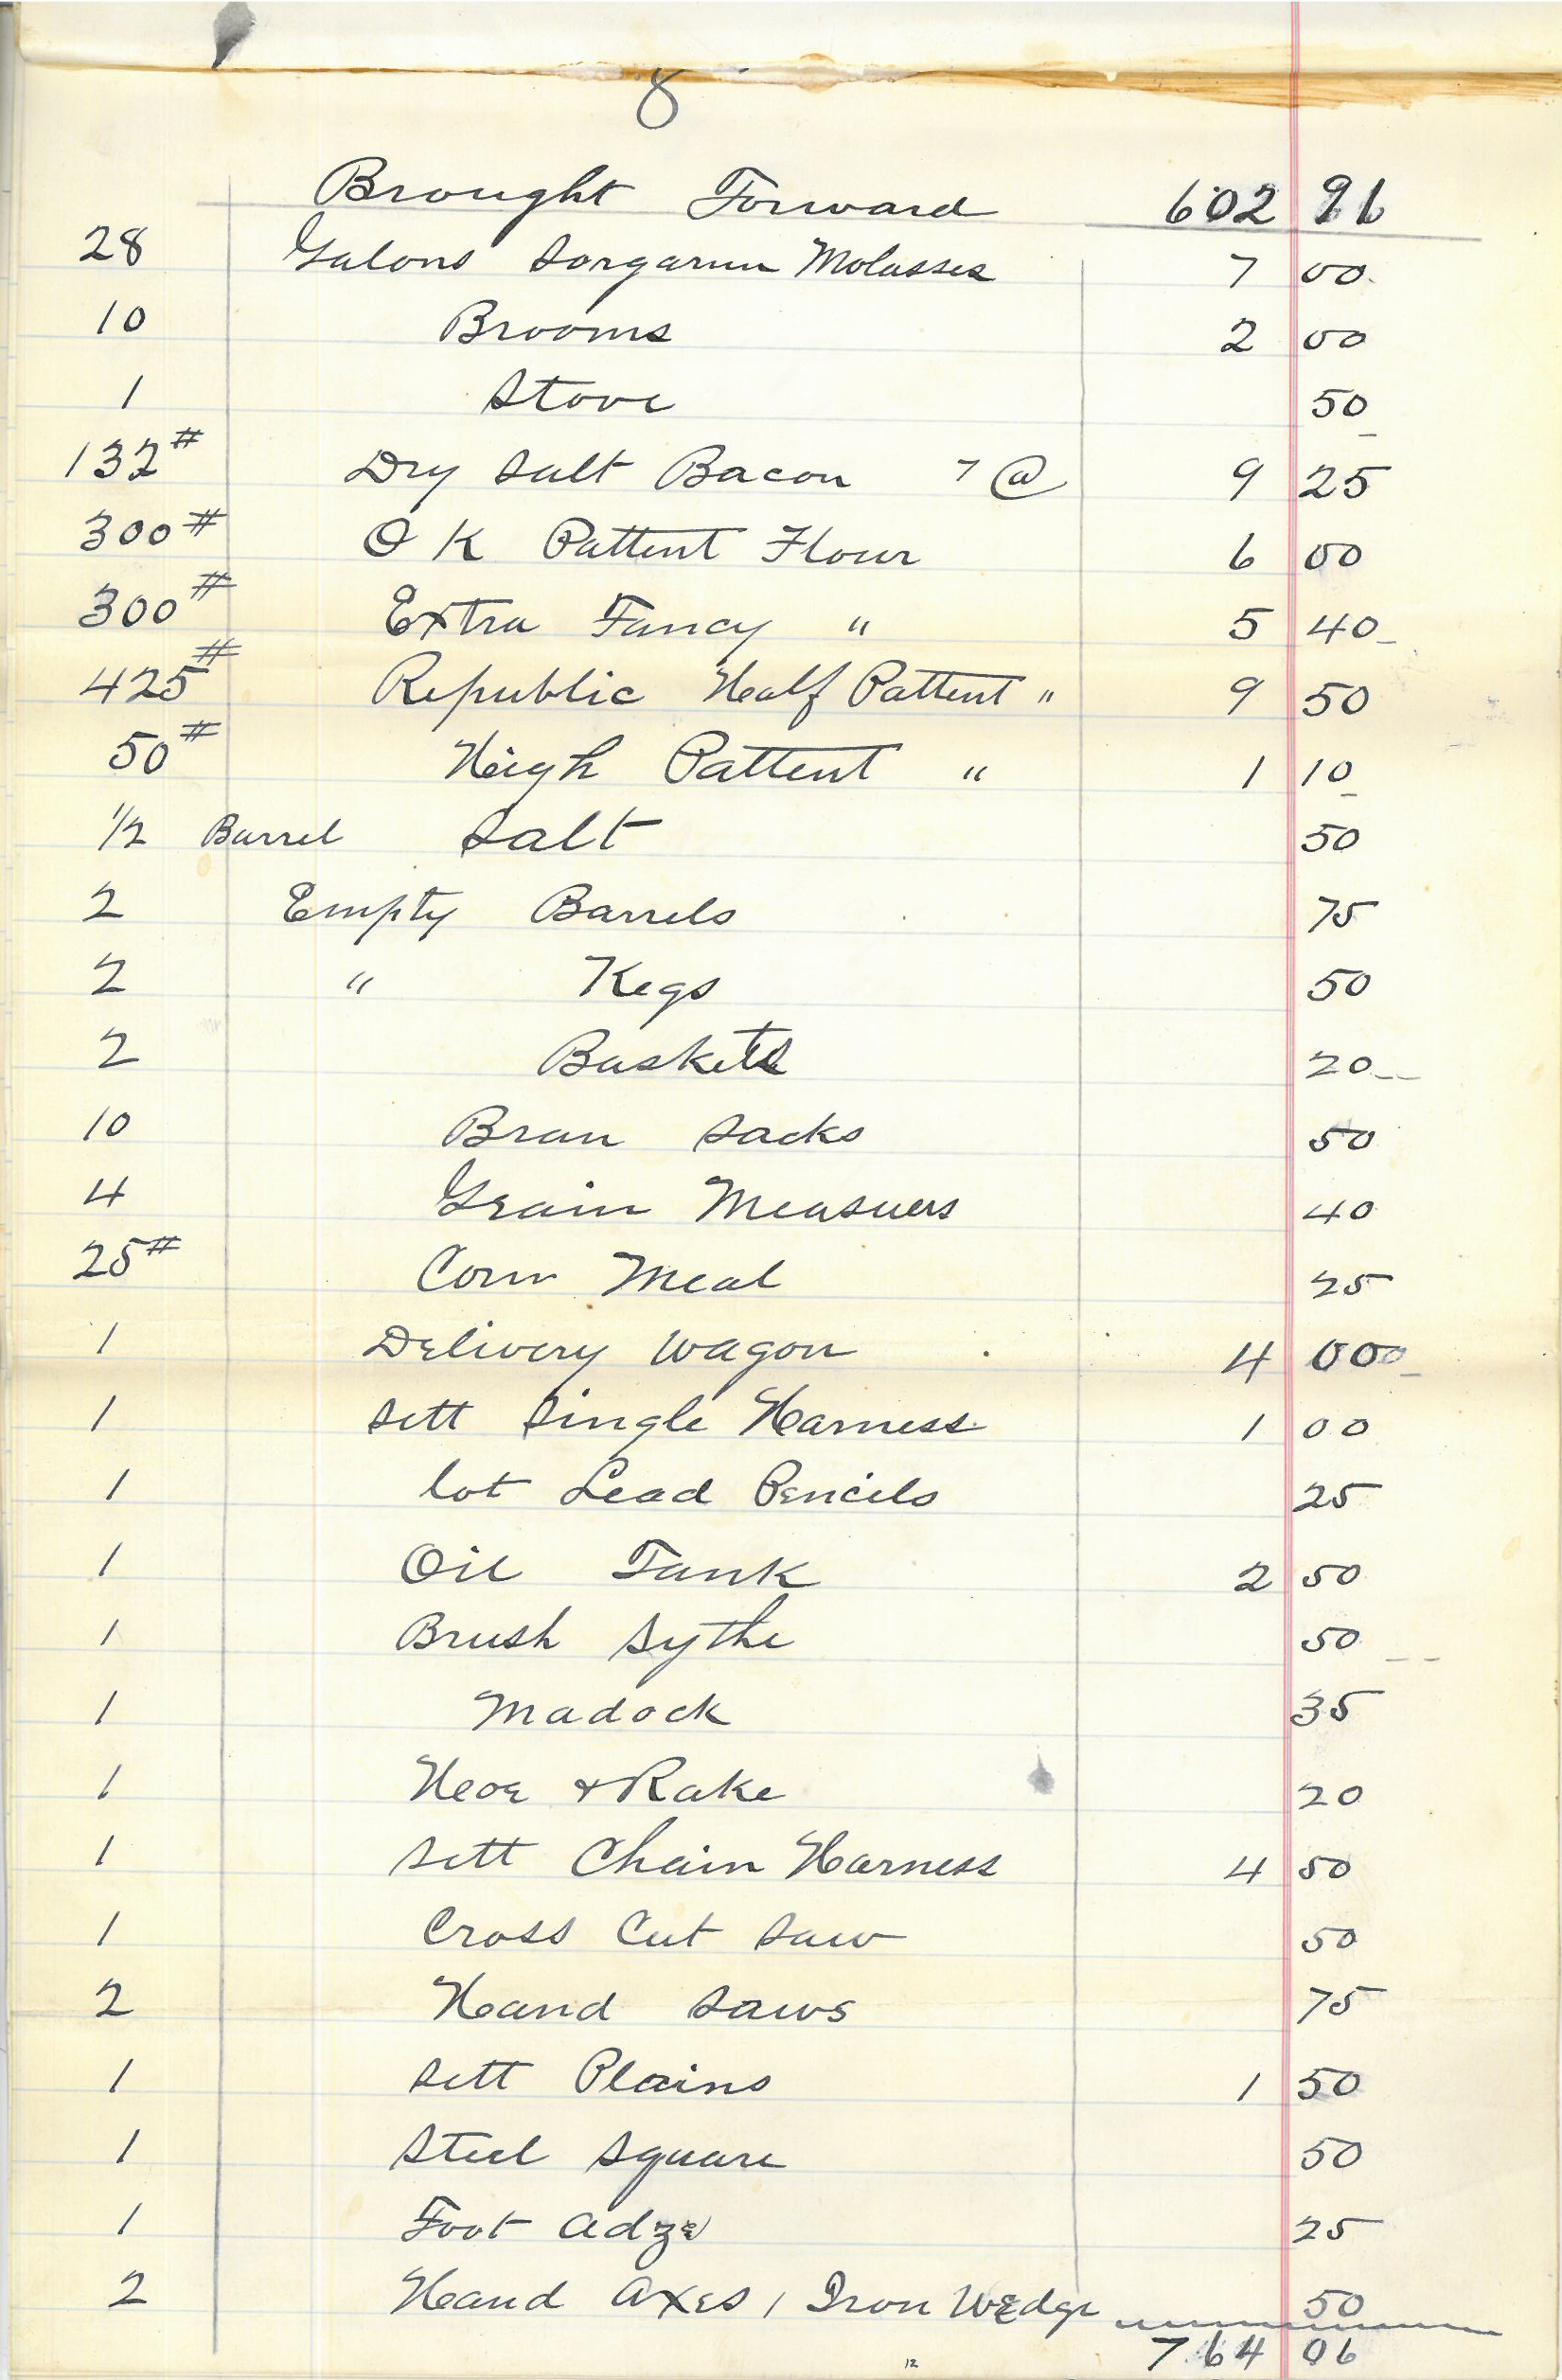 8
Brought Forward 602 96
28 Galons Sorgarum Molasses 7 00
10 Brooms 2 00
1 Stove 50
132# Dry Salt Bacon 7 @ 9 25
300# O K Pattent Flour 6 00
300# Extra Fancy " 5 40
425# Republic Half Pattent " 9 50
50# Heigh Pattent " 1 10
1/2 Barrel Salt 50
2 Empty Barrels 75
2 " Kegs 50
2 Baskets 20
10 Bran Sacks 50
4 Grain Measuers 40
25# Corn Meal 25
1 Delivery Wagon 4 000
1 Sett Single Harness 1 00
1 lot Lead Pencils 25
1 Oil Tank 2 50
1 Brush Sythe 50
1 Madock 35
1 Heoe & Rake 20
1 Sett Chain Harness 4 50
1 Cross Cut Saw 50
2 Hand Saws 75
1 Sett Plains 1 50
1 Steel Square 50
1 Foot Adze 25
2 Hand Axes 1 Iron Wedge 50
764 06
12